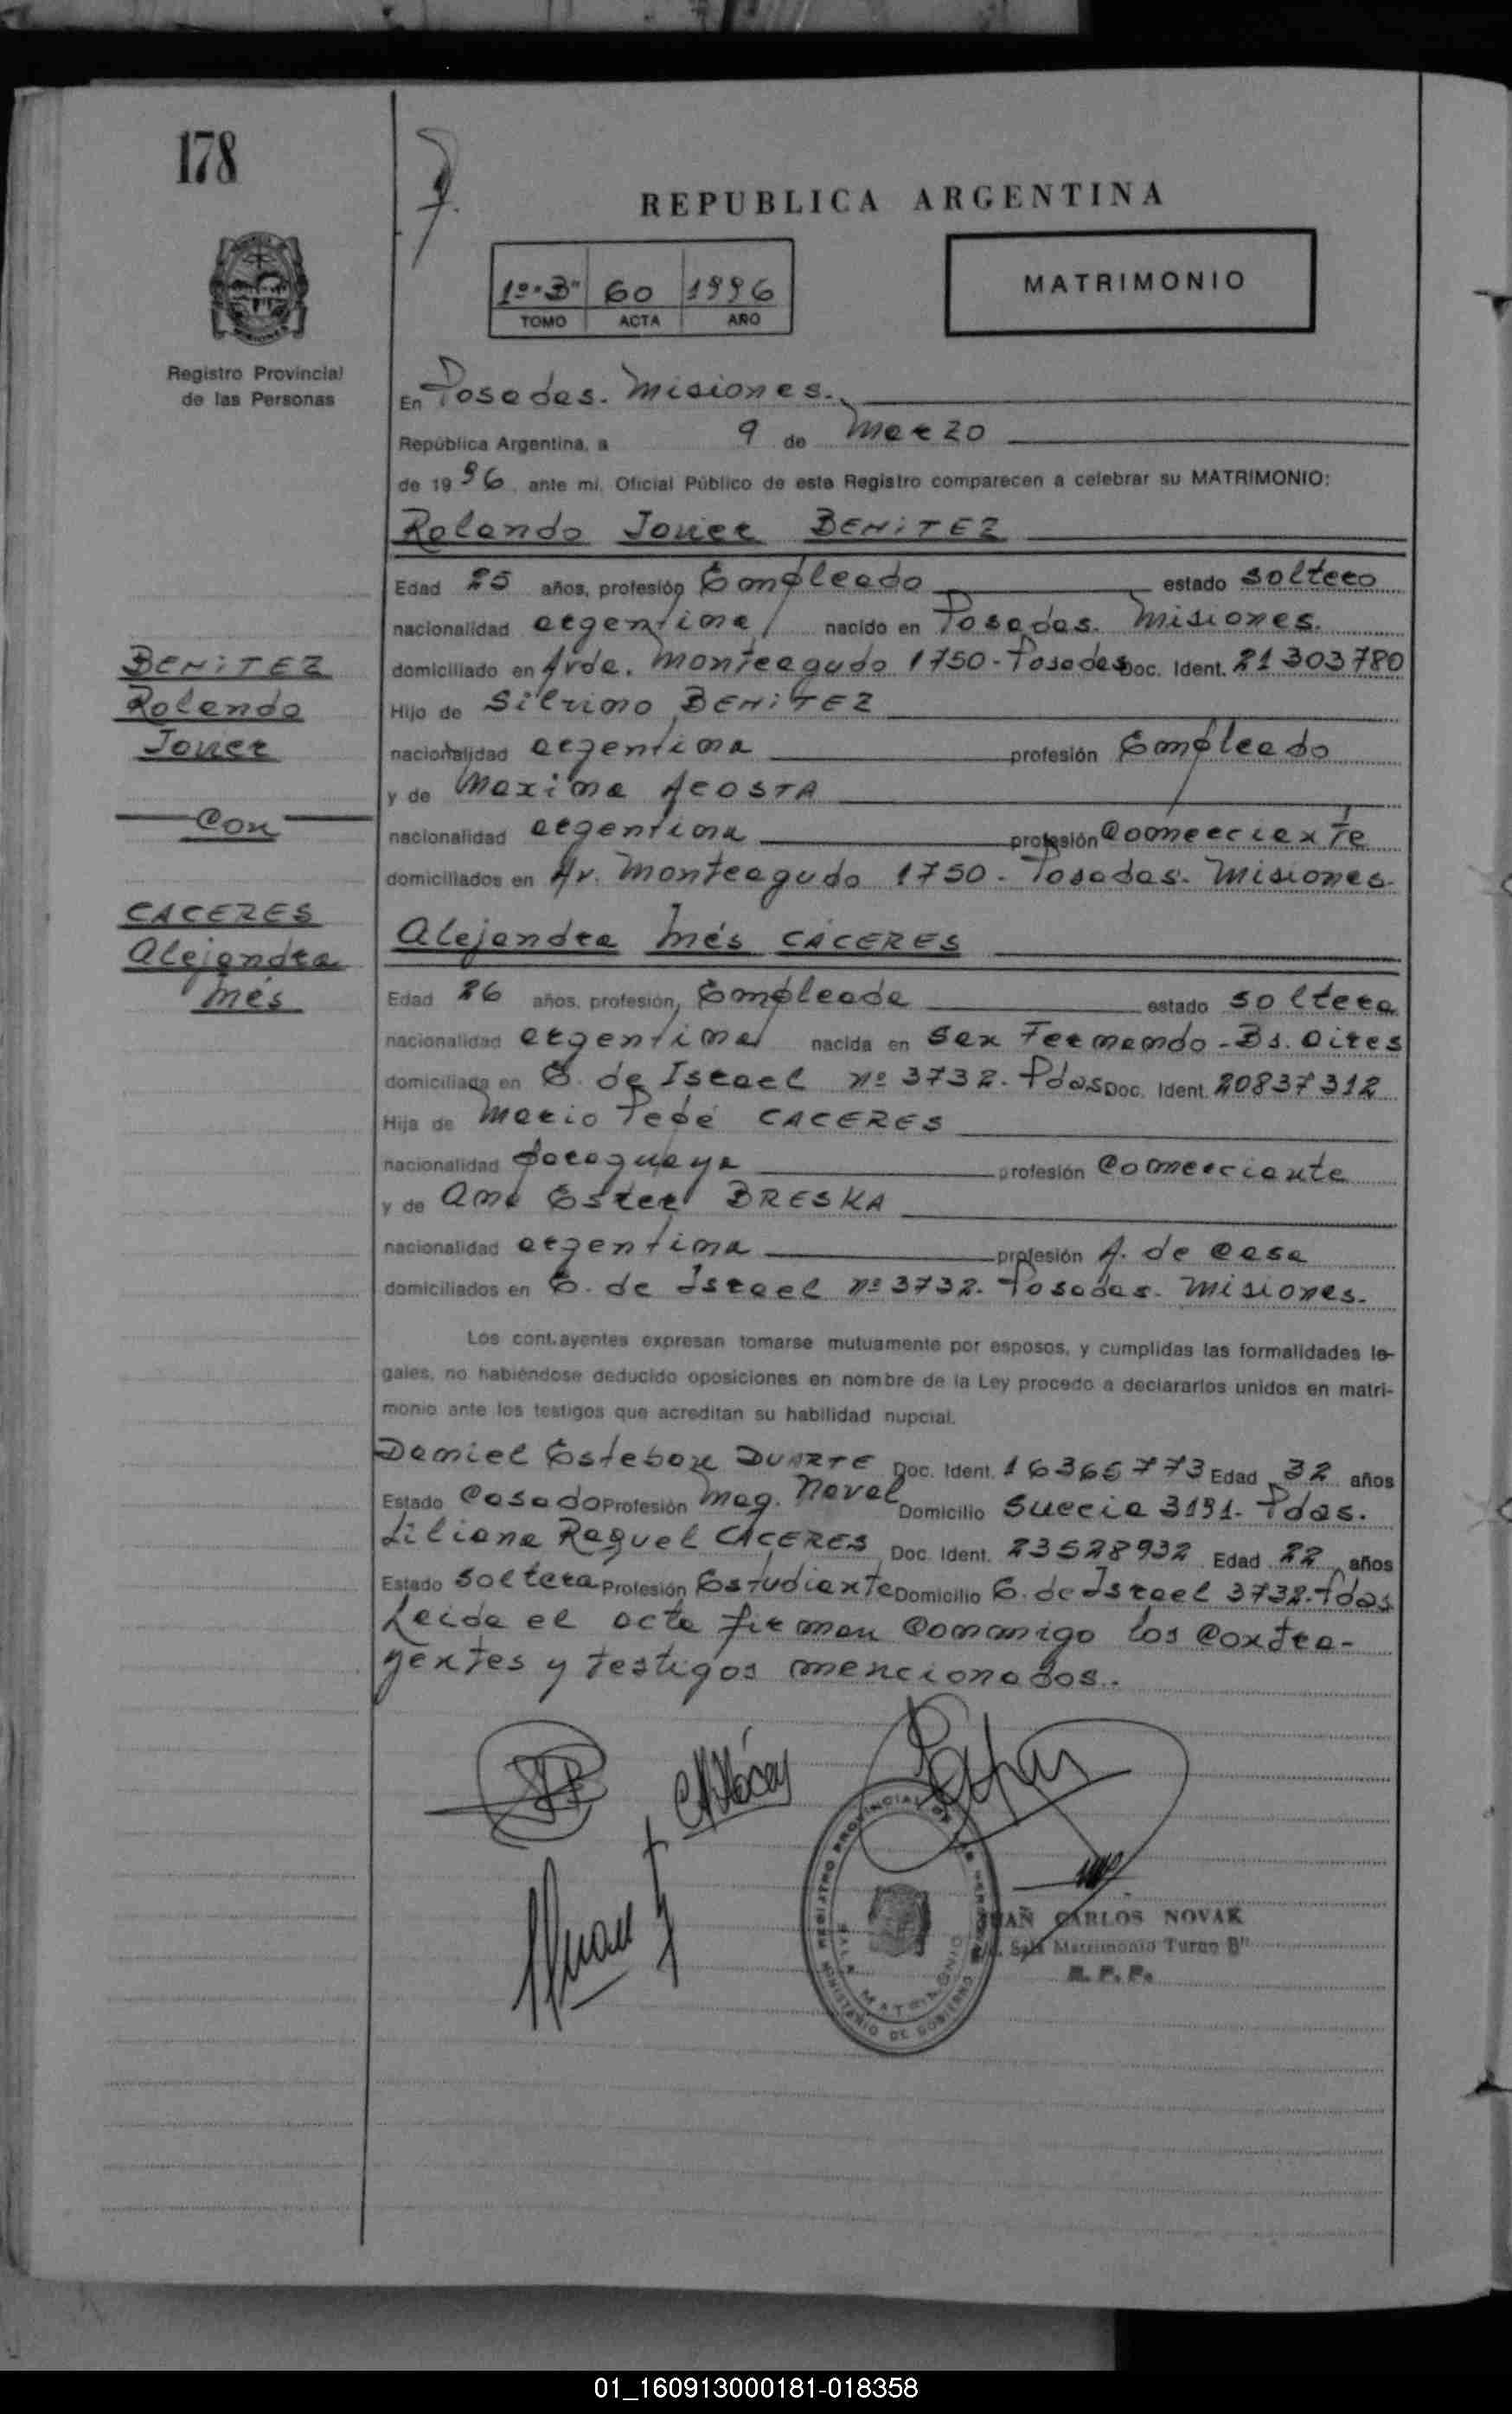 178
REPUBLICA ARGENTINA
1º "B" 60 1996
TOMO ACTA AÑO
MATRIMONIO
Registro Provincial
de las Personas
En Posadas. Misiones.
República Argentina, a 9 de Marzo
de 1996, ante mi, Oficial Público de este Registro comparecen a celebrar su MATRIMONIO:
Rolando Javier BENITEZ
Edad 25 años, profesión Empleado estado soltero
nacionalidad argentina nacido en Posadas. Misiones.
domiciliado en Avda. Monteagudo 1750 - Posadas Doc. Ident. 21303780
Hijo de Silvino BENITEZ
nacionalidad argentina profesión Empleado
y de Maxima ACOSTA
nacionalidad argentina profesión Comerciante
domiciliados en Av. Monteagudo 1750 - Posadas. Misiones.
BENITEZ
Rolando
Javier
Con
CACERES
Alejandra
Inés
Alejandra Inés CACERES
Edad 26 años, profesión, Empleada estado soltera
nacionalidad argentina nacida en San Fernando - Bs. Aires
domiciliada en E. de Israel nº 3732. Pdas Doc. Ident. 20837312
Hija de Mario Pedé CACERES
nacionalidad paraguaya profesión Comerciante
y de Ana Ester BRESKA
nacionalidad argentina profesión A. de Casa
domiciliados en E. de Israel nº 3732. Posadas. Misiones.
Los contrayentes expresan tomarse mutuamente por esposos, y cumplidas las formalidades le-
gales, no habiéndose deducido oposiciones en nombre de la Ley procedo a declararlos unidos en matri-
monio ante los testigos que acreditan su habilidad nupcial.
Daniel Esteban DUARTE Doc. Ident. 16366773 Edad 32 años
Estado Casado Profesión Maq. Naval Domicilio Suecia 3191. Pdas.
Liliana Raquel CACERES Doc. Ident. 23528932 Edad 22 años
Estado Soltera Profesión Estudiante Domicilio E. de Israel 3732. Pdas
Leida el acta firman conmigo los contra-
yentes y testigos mencionados.
REGISTRO PROVINCIAL DE LAS PERSONAS
SALA MATRIMONIO
MINISTERIO DE GOBIERNO
JUAN CARLOS NOVAK
Sala Matrimonio Turno B"
R. P. P.
01_160913000181-018358